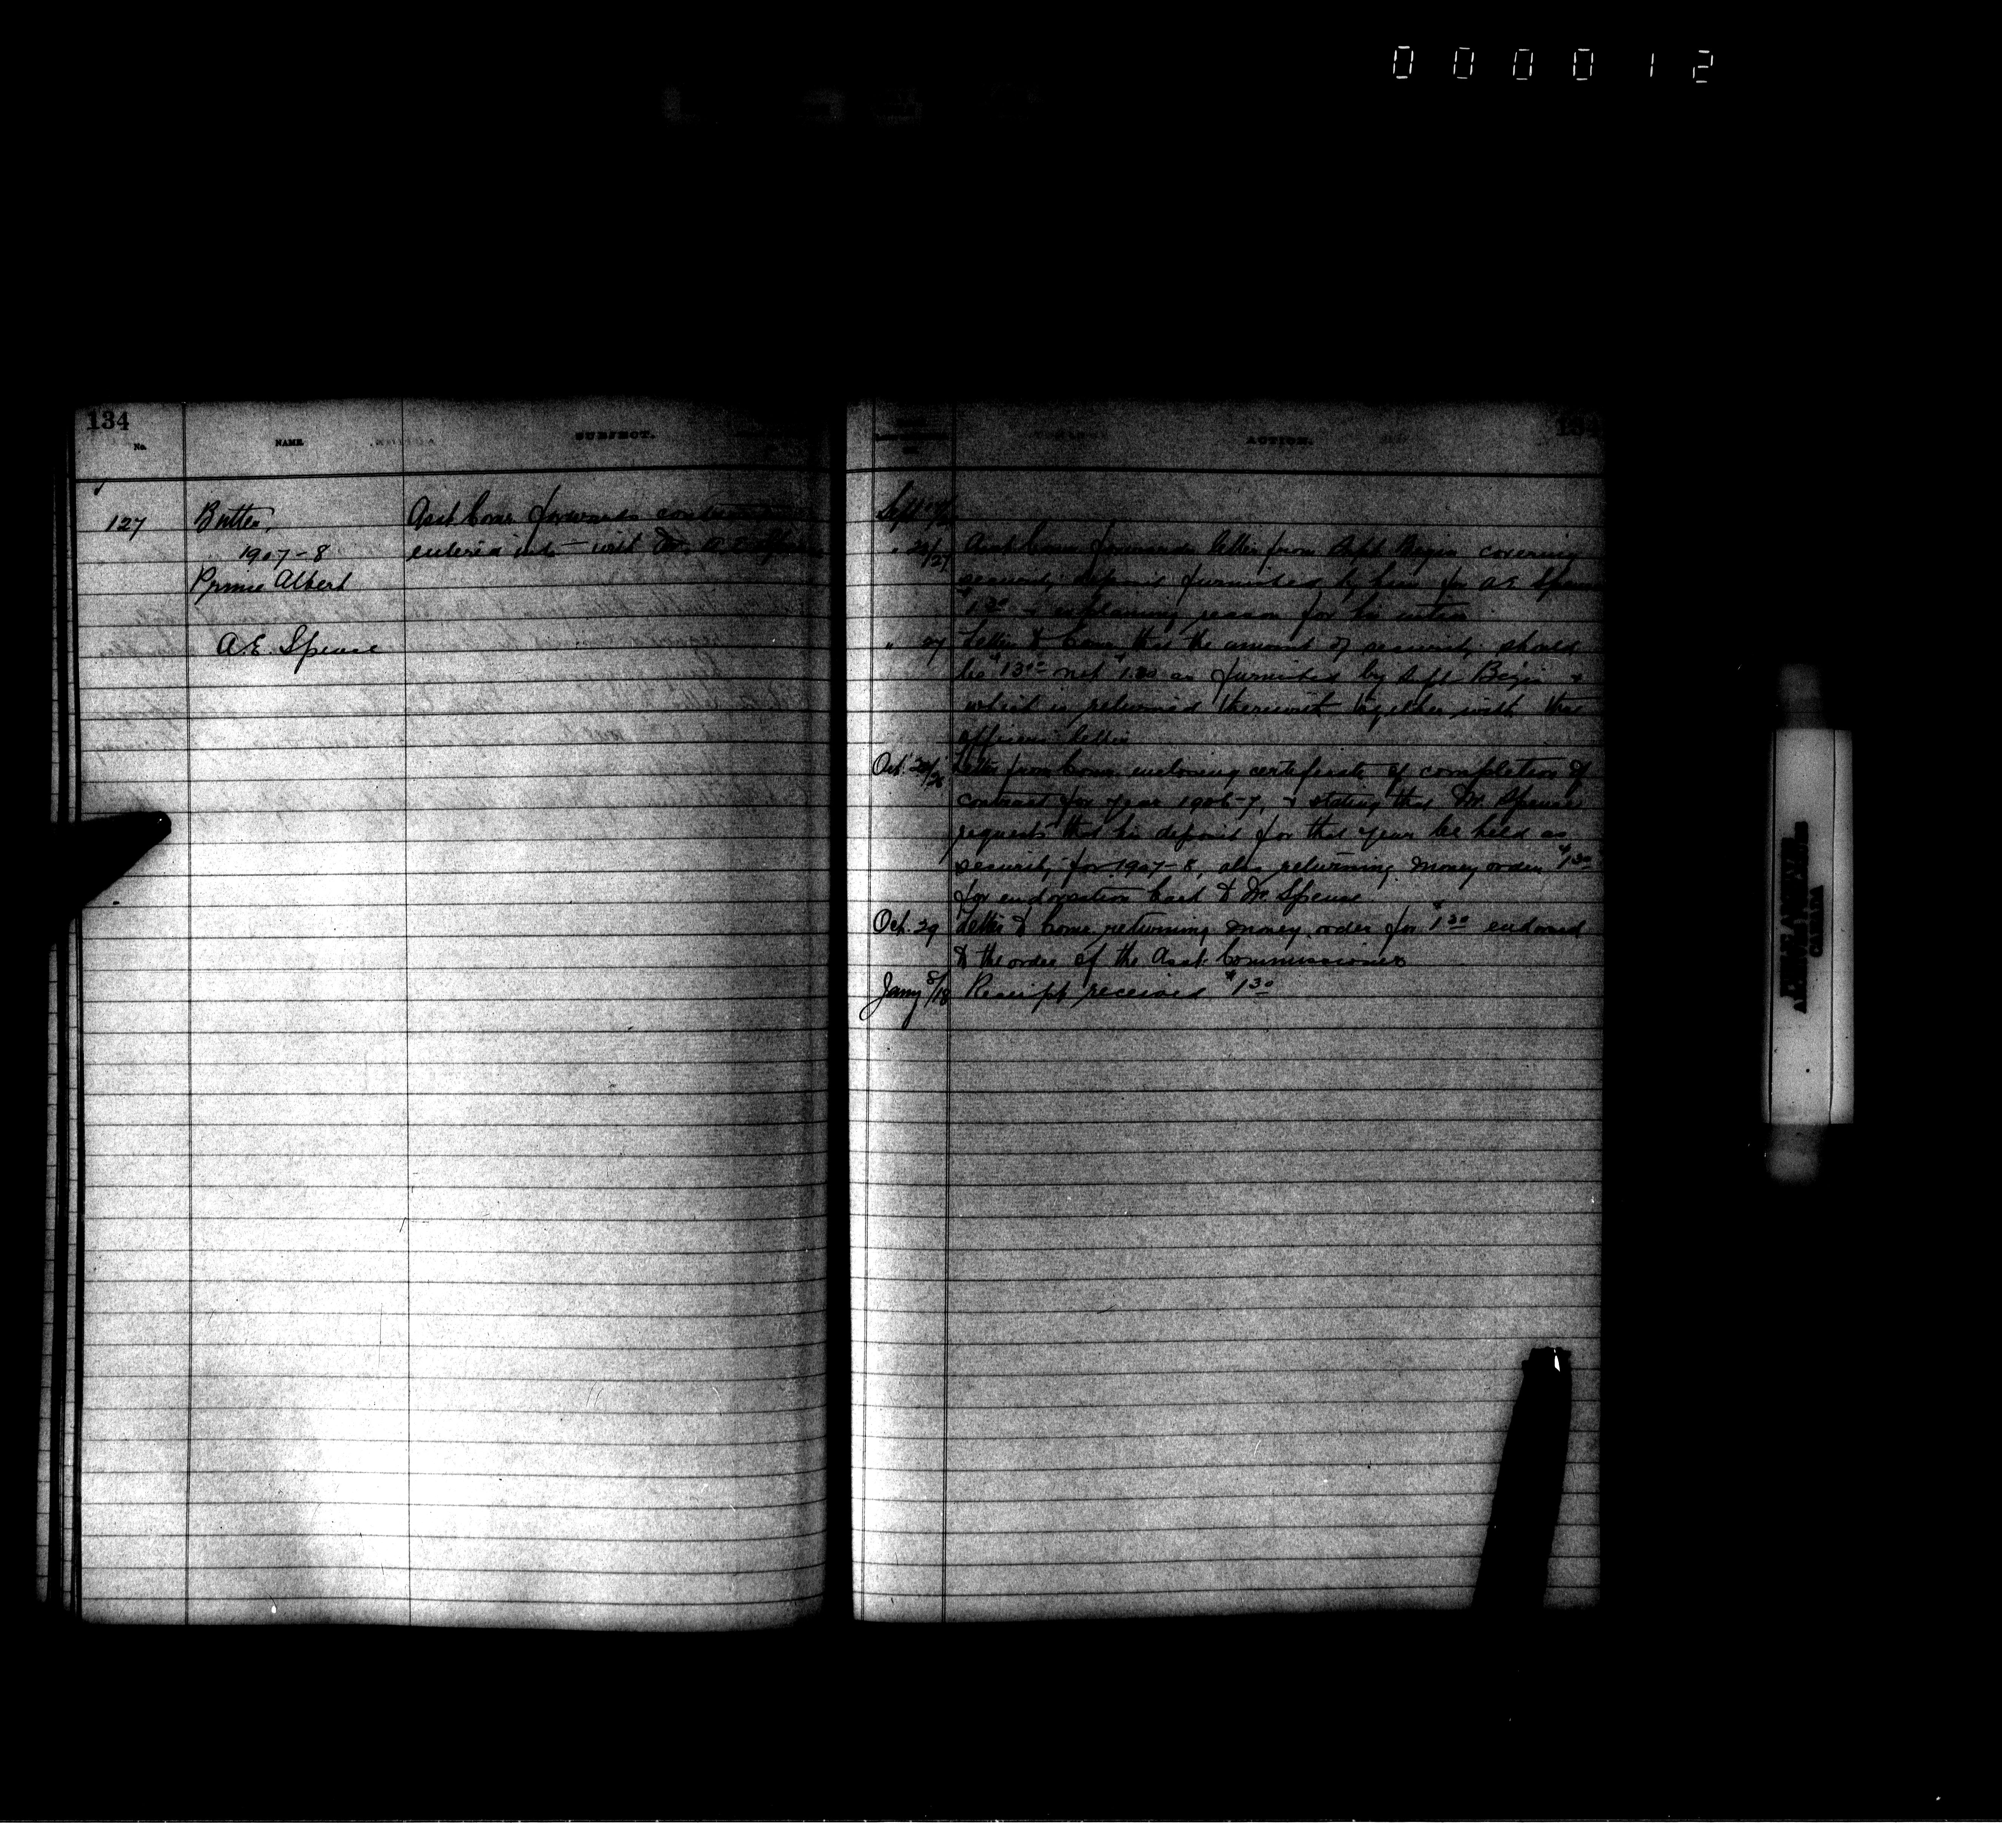 000012
134
No.
NAME
SUBJECT.
ACTION.
127
Butter,
1907-8
Prince Albert
A.E. Spence
Asst Comr forwards contract
entered into with Mr. A.E. Spence
Sept
Asst Comr forwards letter from Supt Begin covering
security deposit furnished by him for A.E. Spence
$1.30 & explaining reason for his
" 27 Letter to Comr that the amount of security should
be $13.00 not $1.30 as furnished by Supt Begin &
which is returned therewith together with that
officers letter
Oct. Letter from Comr enclosing certificate of completion of
contract for year 1906-7, & stating that Mr. Spence
requests that his deposit for that year be held as
security for 1907-8, also returning money order $1.30
for endorsation back to Mr. Spence
Oct. 29 Letter to Comr returning money order for $1.30 endorsed
to the order of the Asst. Commissioner
Jany 8/18 Receipt received $1.30
CANADA